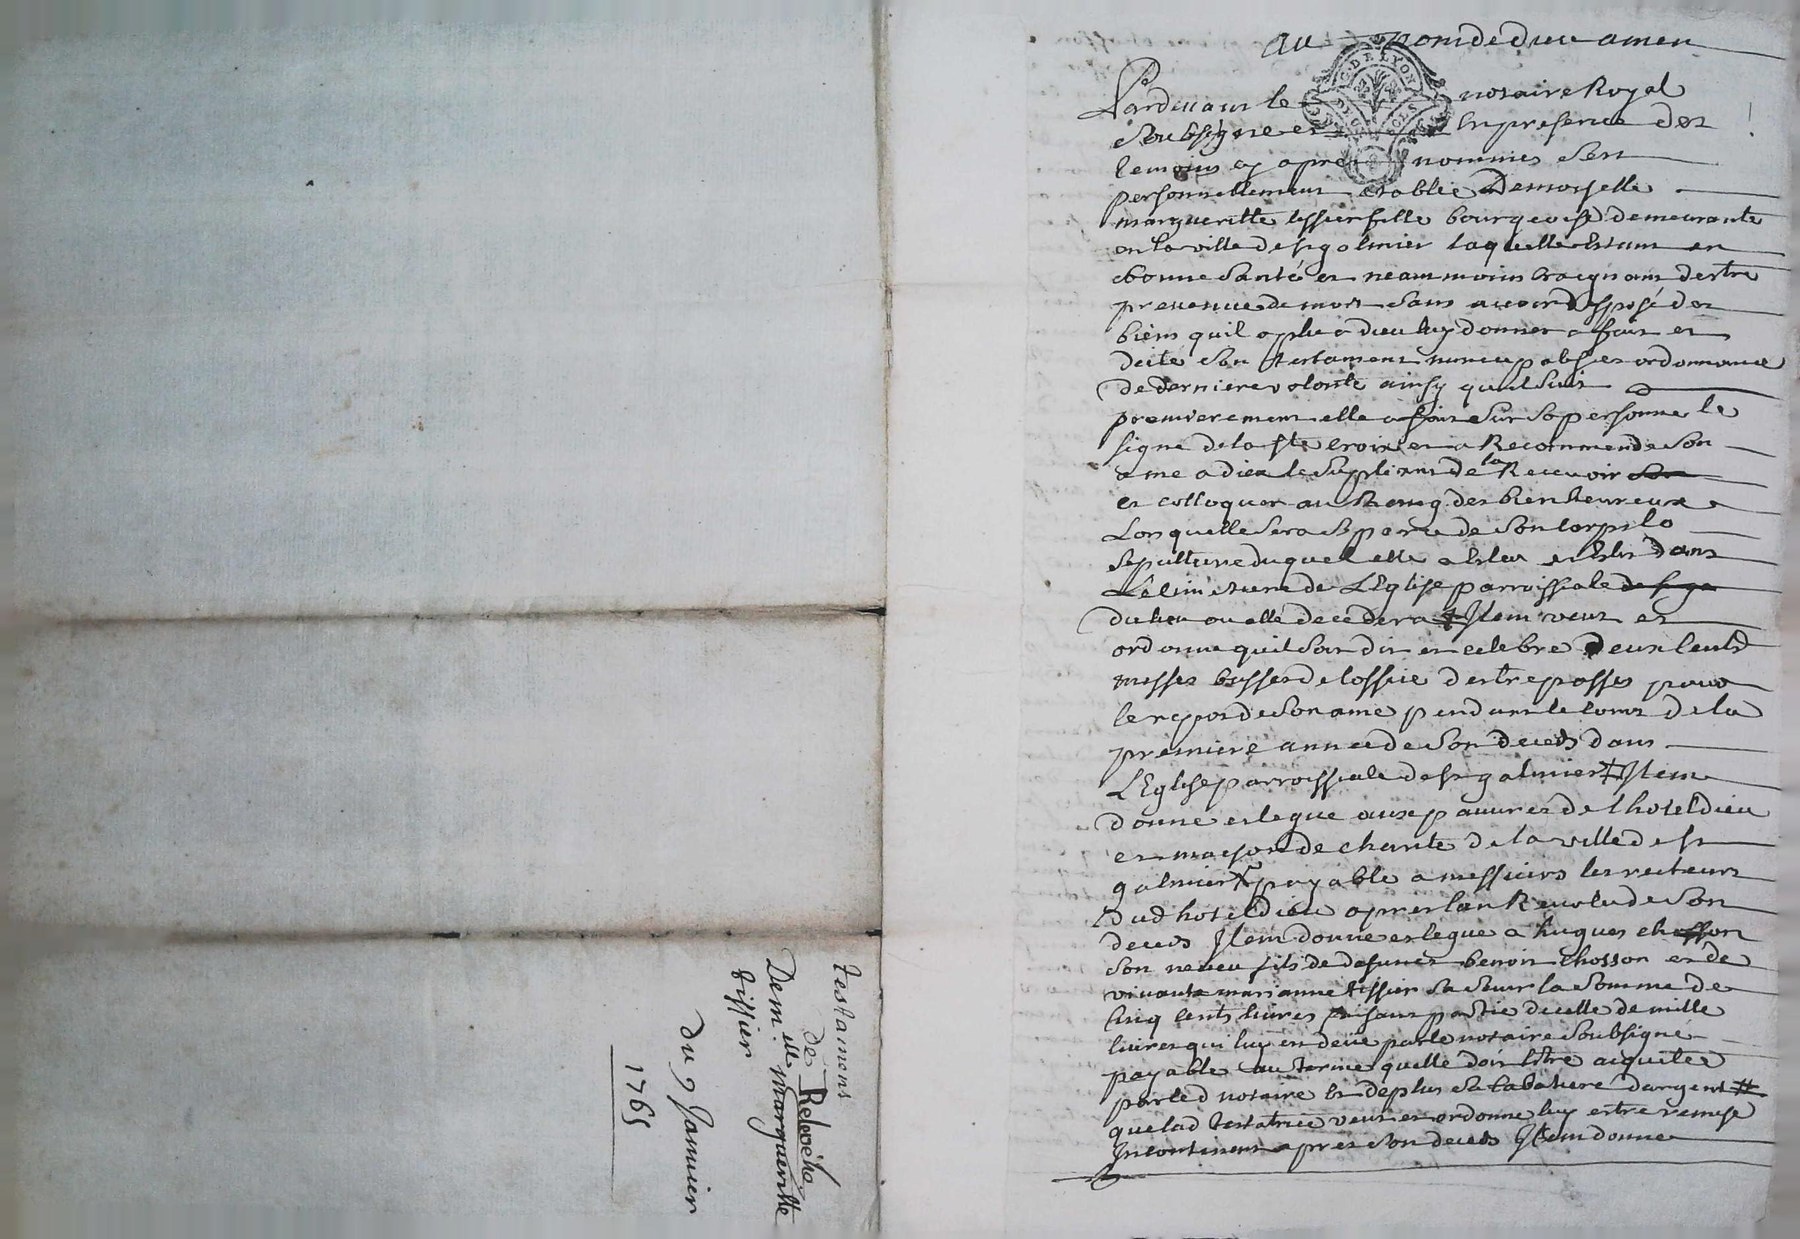 Testament
de Relvecha
Dem.lle margueritte
tissier
du 9 Janvier
1765
Au nom de dieu amen
G. DE LYON
Pardevant le notaire Royal
Soubsigne et En presence des
temoins cy apres nommes Sest
personnellement establie Demoyselle
margueritte tissier fille bourgeoise demeurante
en la ville de st galmier laquelle Estant en
bonne Santé et neantmoins craignant destre
prevenue de mort Sans avoir disposé des
biens quil a plu a dieu luy donner a fait et
dicté Son testament nuncupatif et ordonnance
de derniere volonté ainsy quil Suit
premierement elle a fait Sur Sa personne le
signe de la ste croix et a Recommende Son
ame a dieu le Suppliant de la Recevoir Son
et colloquer au Rang des bienheureux
Lors quelle Sera Separée de Son corps la
Sepulture duquel elle a Eleu et Elit dans
Le Cimetiere de LEglise parroissiale de st ga
du lieu ou elle decedera Item veut et
ordonne quil Soit dit et celebre Deux Cents
messes basses de loffice des trepasses pour
le repos de Son ame pendant le cours de la
premiere année de Son deceds dans
LEglise parroissiale de st galmier Item
donne et legue aux pauvres de lhotel dieu
et maison de charité de la ville de st
galmier payable a messieurs les recteurs
dud hotel dieu apres lan Revolu de Son
deceds Item donne et legue a hugues chosson
Son neveu fils de defunct benoit Chosson et de
vivante marianne tissier Sa Seur la Somme de
Cinq Cents livres faisant partie dicelle de mille
livres qui luy est deüe par le notaire Soubsigné
payable au terme quelle doit Etre acquitée
par led notaire Et de plus Sa tabatiere dargent
que lad testatrice veut et ordonne luy estre remise
Incontinent apres Son deceds Item donne